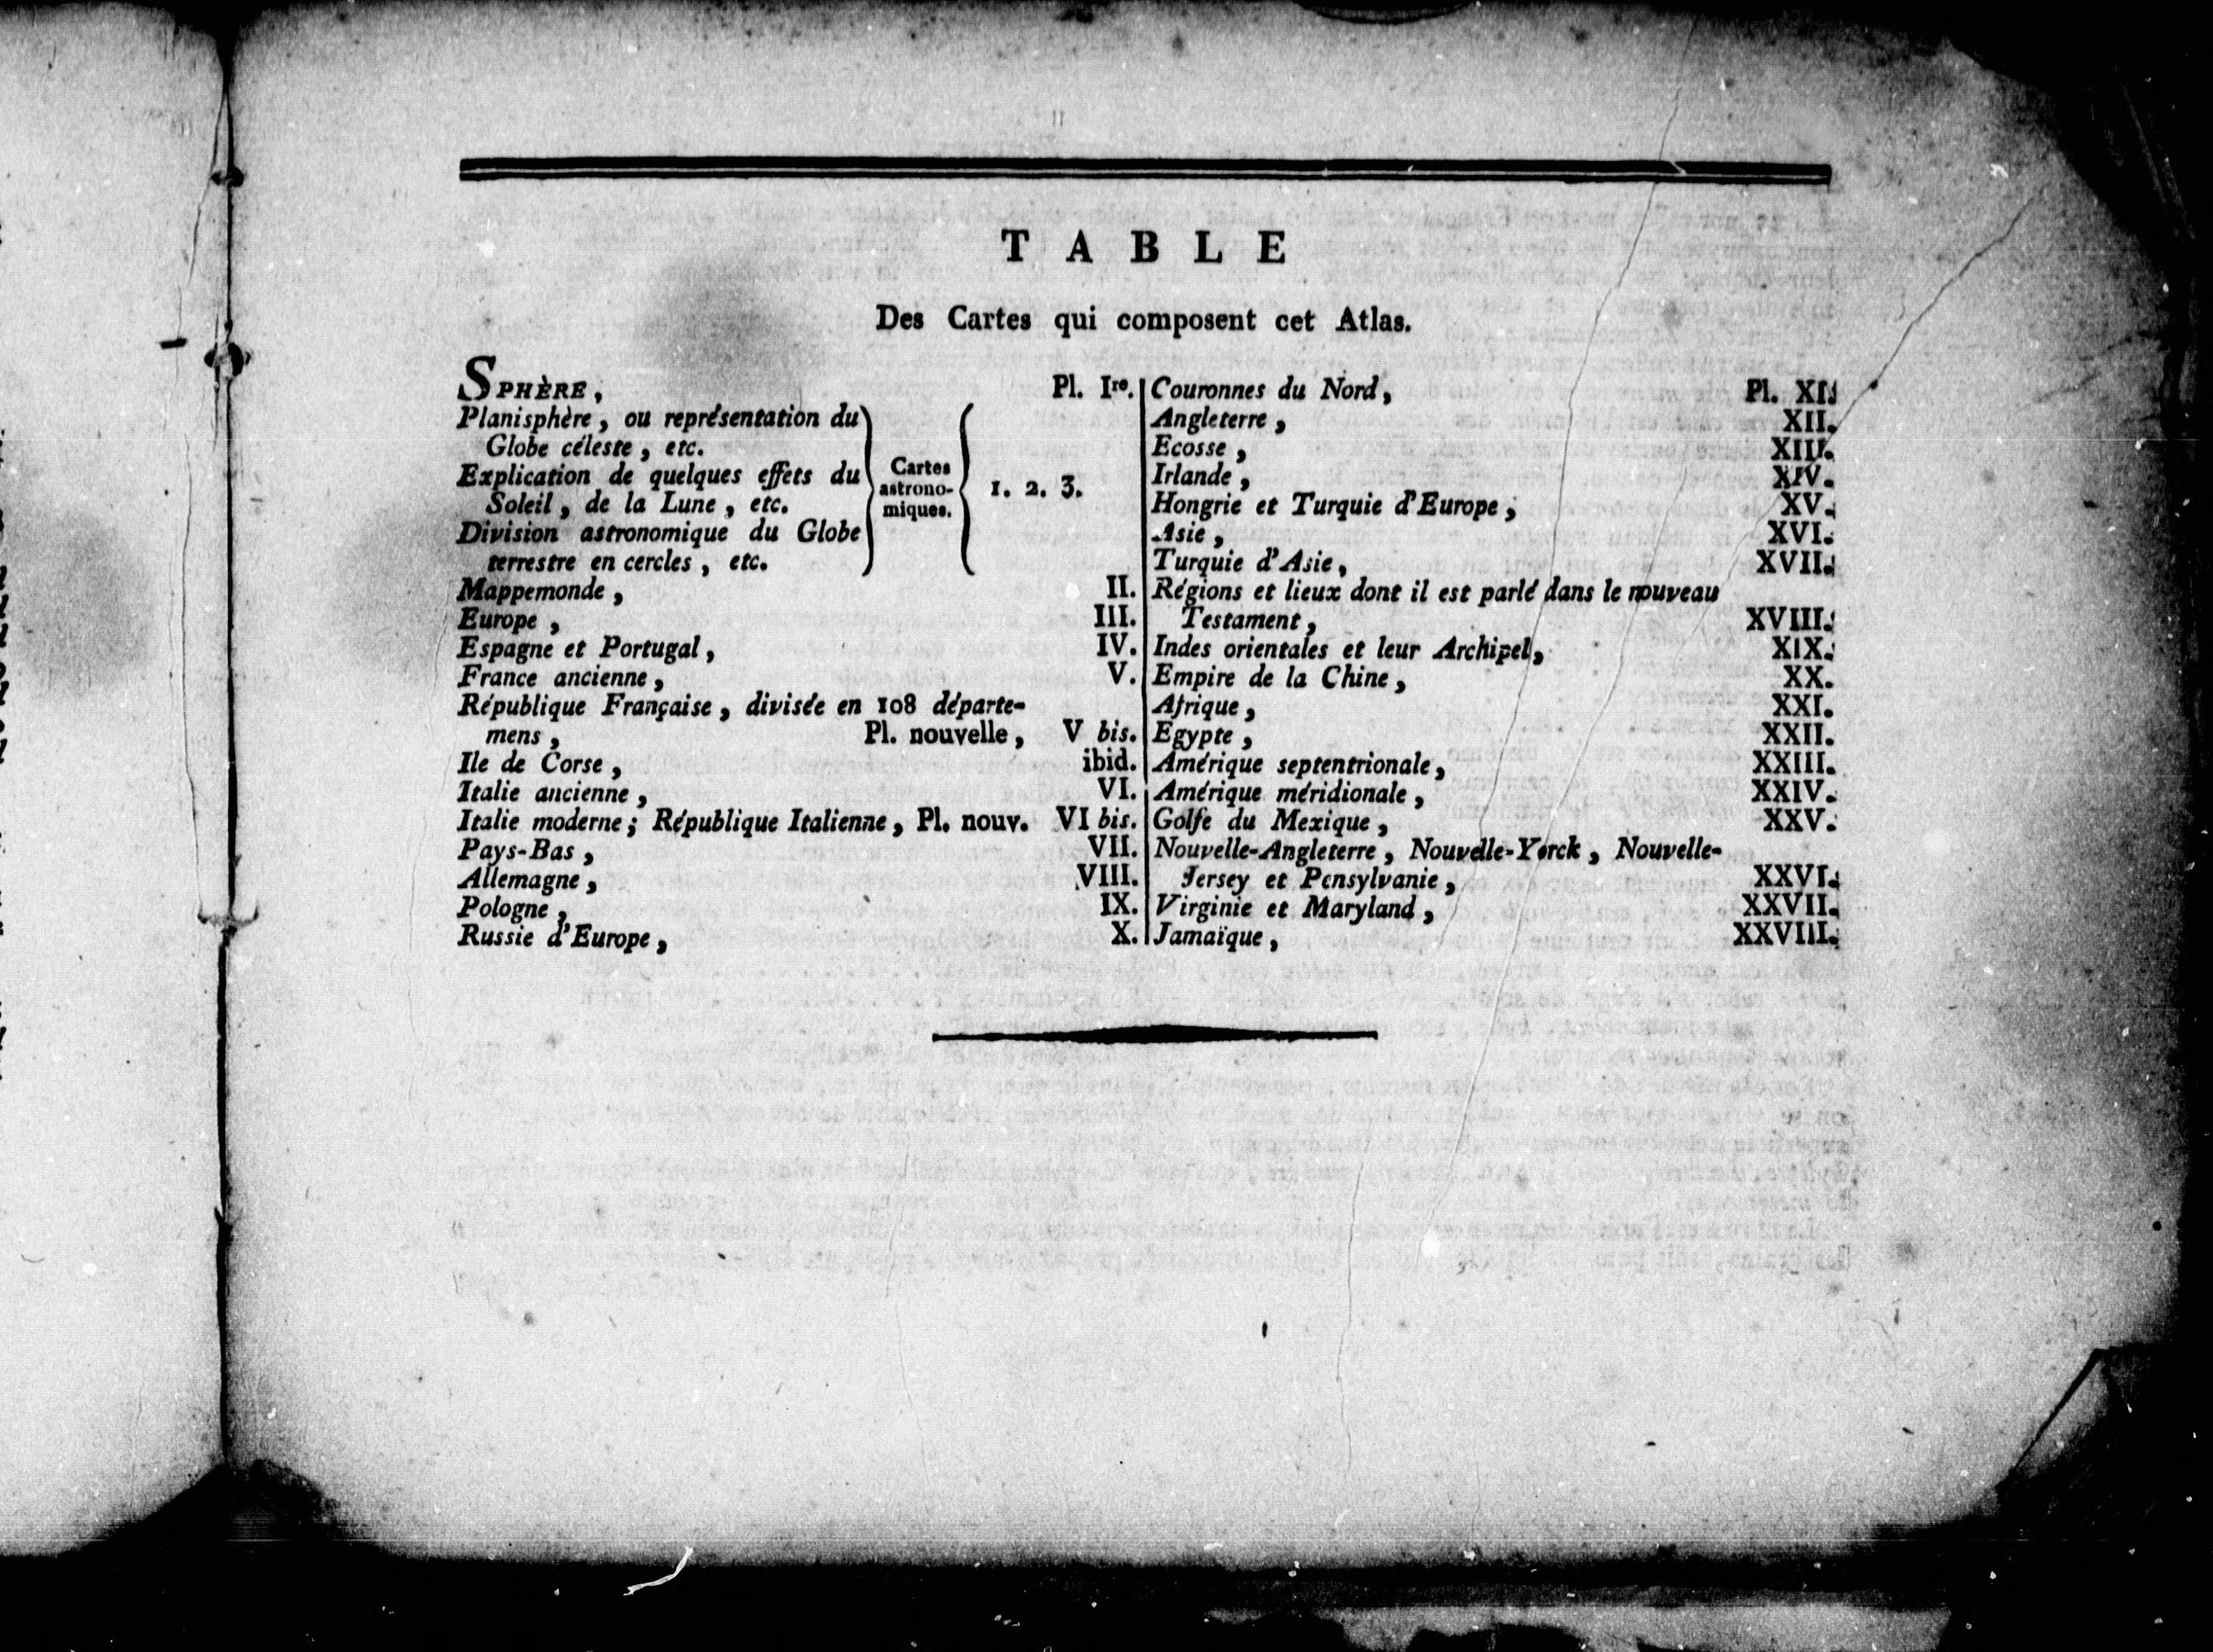 TABLE
Des Cartes qui composent cet Atlas.
SPHÈRE, Pl. Ire.
Planisphère, ou représentation du
Globe céleste, etc.
Explication de quelques effets du
Soleil, de la Lune, etc.
Division astronomique du Globe
terrestre en cercles, etc.
Cartes
astrono-
miques.
1. 2. 3.
Mappemonde, II.
Europe, III.
Espagne et Portugal, IV.
France ancienne, V.
République Française, divisée en 108 départe-
mens, Pl. nouvelle, V bis.
Ile de Corse, ibid.
Italie ancienne, VI.
Italie moderne; République Italienne, Pl. nouv. VI bis.
Pays-Bas, VII.
Allemagne, VIII.
Pologne, IX.
Russie d'Europe, X.
Couronnes du Nord, Pl. XI.
Angleterre, XII.
Ecosse, XIII.
Irlande, XIV.
Hongrie et Turquie d'Europe, XV.
Asie, XVI.
Turquie d'Asie, XVII.
Régions et lieux dont il est parlé dans le nouveau
Testament, XVIII.
Indes orientales et leur Archipel, XIX.
Empire de la Chine, XX.
Afrique, XXI.
Egypte, XXII.
Amérique septentrionale, XXIII.
Amérique méridionale, XXIV.
Golfe du Mexique, XXV.
Nouvelle-Angleterre, Nouvelle-Yorck, Nouvelle-
Jersey et Pensylvanie, XXVI.
Virginie et Maryland, XXVII.
Jamaïque, XXVIII.